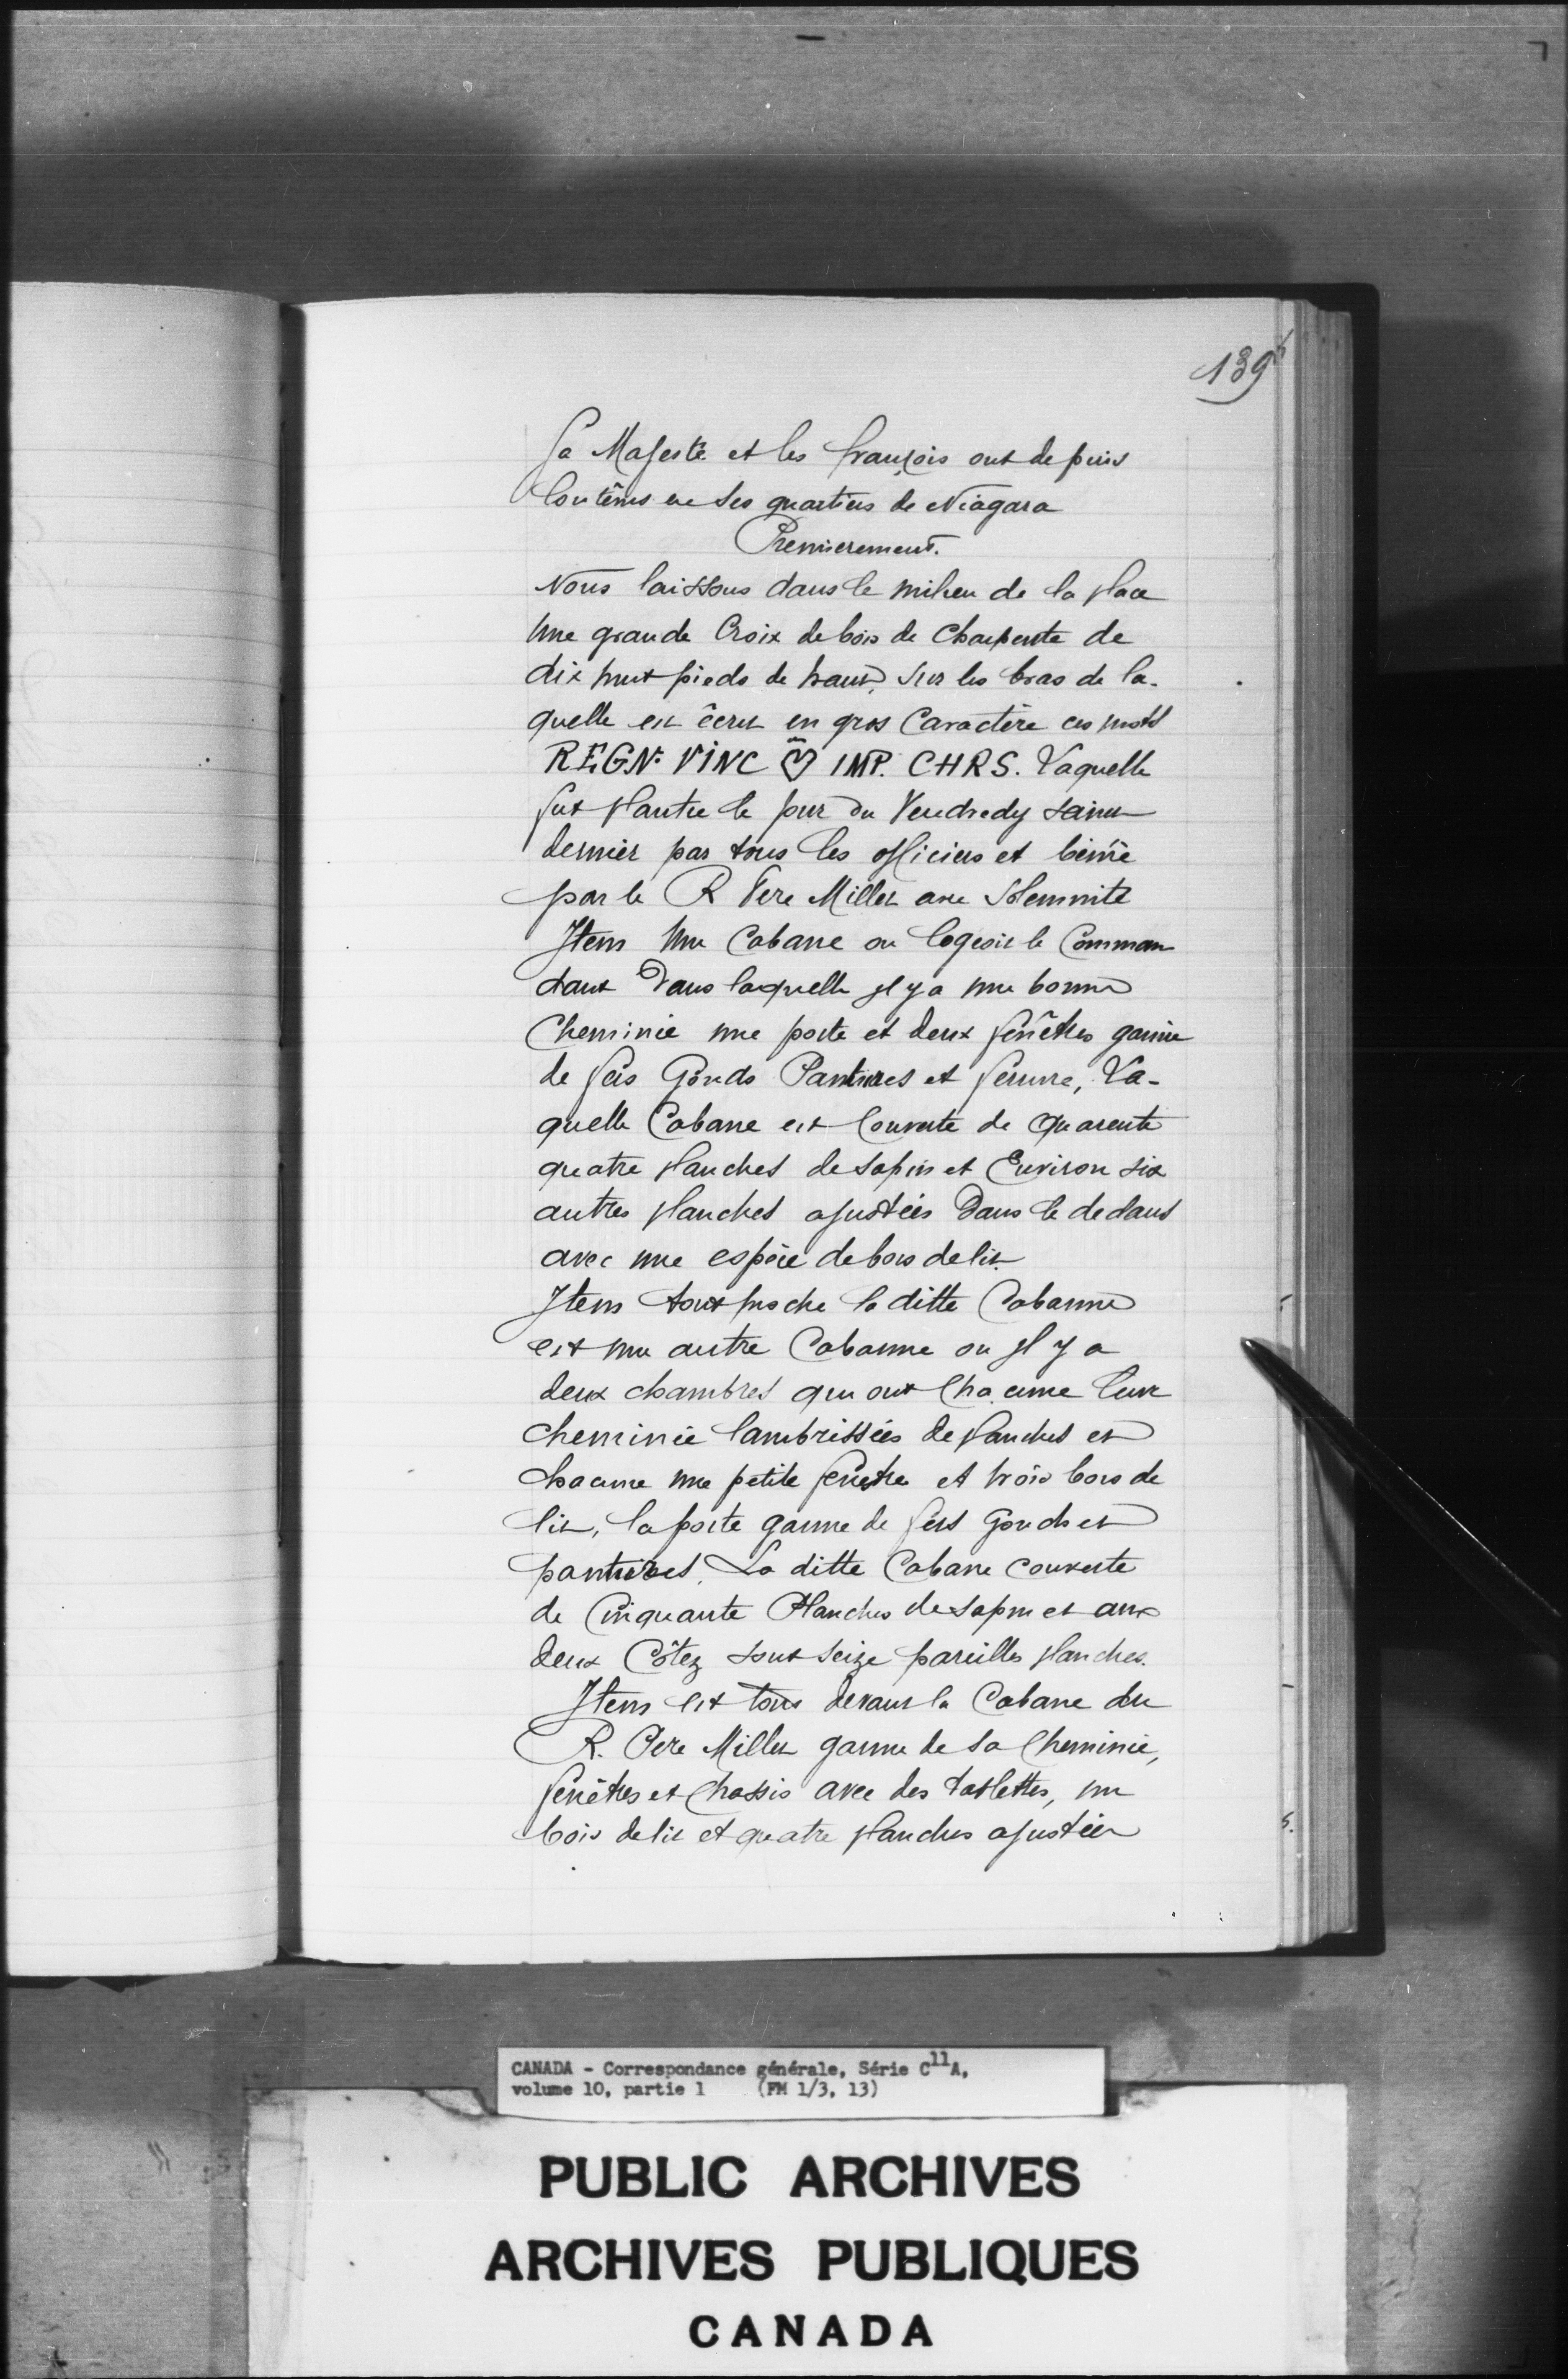 139
Sa Majesté et les françois ont depuis
longtems en ses quartiers de Niagara
Premierement.
Nous laissons dans le milieu de la place
Une grande Croix de bois de Charpente de
dix huit pieds de haut, sur les bras de la-
quelle est écrit en gros Caractère ces mots
REGN. VINC ♡ IMP. CHRS. Laquelle
fut plantée le jour du Vendredy saint
dernier par tous les officiers et bénite
par le R Pere Millet avec Solemnité
Item Une Cabane ou logeoit le Comman
dant Dans laquelle il y a une bonne
Cheminée une porte et deux fenêtres garnie
de fers Gonds Pantures et ferrure, La-
quelle Cabane est Couverte de Quarente
quatre planches de sapin et Environ six
autres planches ajustées Dans le dedans
avec une espèce de bois de lit
Item tout proche la ditte Cabanne
est une autre Cabanne ou Il y a
deux chambres qui ont Chacune leur
cheminée lambrissées de planches et
chacune une petite fenetre et trois bois de
lit, la porte garnie de fers Gonds et
pantures. La ditte Cabane couverte
de Cinquante Planches de sapin et aux
deux Côtez sont seize pareilles planches.
Item est tous devant la Cabane du
R. Pere Millet garnie de sa Cheminée,
fenêtres et Chassis avec des tablettes, un
bois de lit et quatre planches ajustées
CANADA - Correspondance générale, Série C11A,
volume 10, partie 1 (FM 1/3, 13)
PUBLIC ARCHIVES
ARCHIVES PUBLIQUES
CANADA